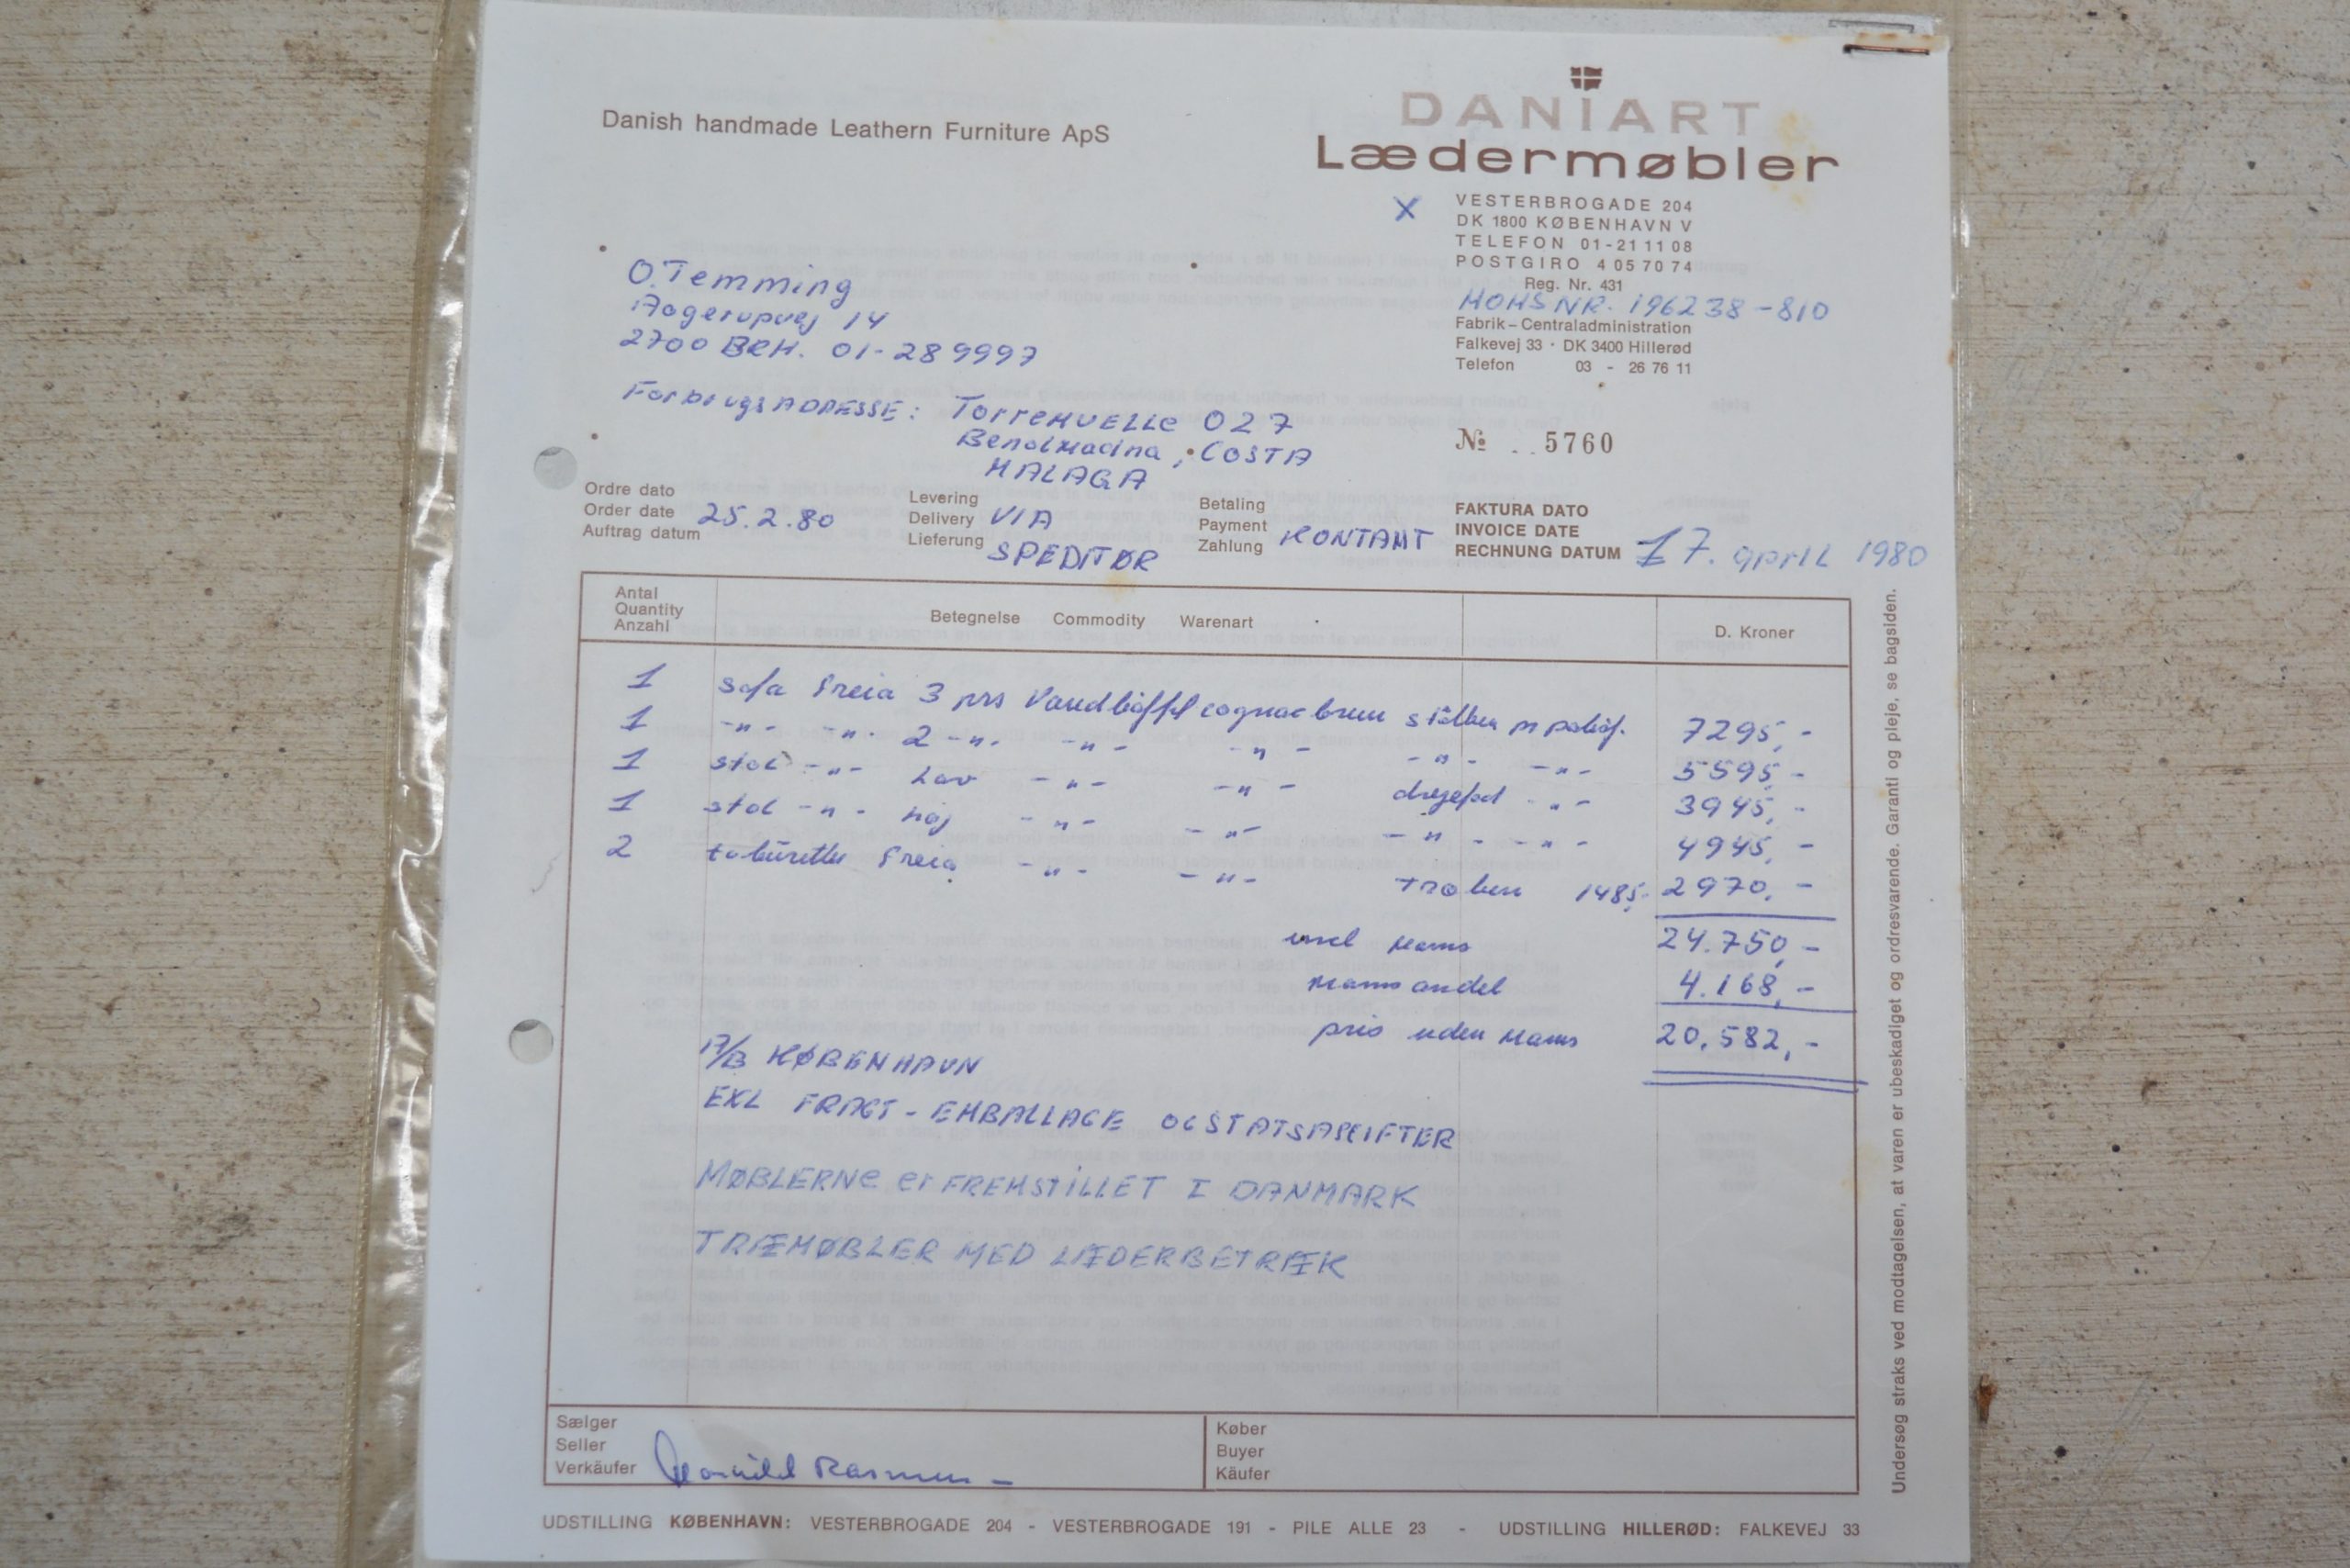 Danish handmade Leathern Furniture ApS
DANIART
Lædermøbler
X
VESTERBROGADE 204
DK 1800 KØBENHAVN V
TELEFON 01-21 11 08
POSTGIRO 4 05 70 74
Reg. Nr. 431
MOMS NR. 196238-810
Fabrik – Centraladministration
Falkevej 33 · DK 3400 Hillerød
Telefon 03 - 26 76 11
O. Temming
Aagerupvej 14
2700 BRH. 01-289997
ForbrugsADRESSE: TorreMUELLe 027
Benalmadna, COSTA
MALAGA
№ 5760
Ordre dato
Order date
Auftrag datum
25.2.80
Levering
Delivery
Lieferung
VIA
SPEDITØR
Betaling
Payment
Zahlung
KONTANT
FAKTURA DATO
INVOICE DATE
RECHNUNG DATUM
17. april 1980
Antal
Quantity
Anzahl
Betegnelse Commodity Warenart
D. Kroner
1 sofa Freia 3 prs Vandbøffel cognacbrun 7295,-
1 -"- -"- 2 -"- -"- -"- -"- -"- 5595,-
1 stol -"- Lav -"- -"- drejefod -"- 3945,-
1 stol -"- høj -"- -"- -"- -"- 4945,-
2 taburetter Freia -"- -"- træben 1485,- 2970,-
incl Moms 24.750,-
Moms andel 4.168,-
pris uden Moms 20.582,-
A/B KØBENHAVN
EXL FRAGT-EMBALLAGE OG STATSAFGIFTER
MØBLERNe er FREMSTILLET I DANMARK
TRÆMØBLER MED LÆDERBETRÆK
Sælger
Seller
Verkäufer
Køber
Buyer
Käufer
UDSTILLING KØBENHAVN: VESTERBROGADE 204 - VESTERBROGADE 191 - PILE ALLE 23 - UDSTILLING HILLERØD: FALKEVEJ 33
Undersøg straks ved modtagelsen, at varen er ubeskadiget og ordresvarende. Garanti og pleje, se bagsiden.